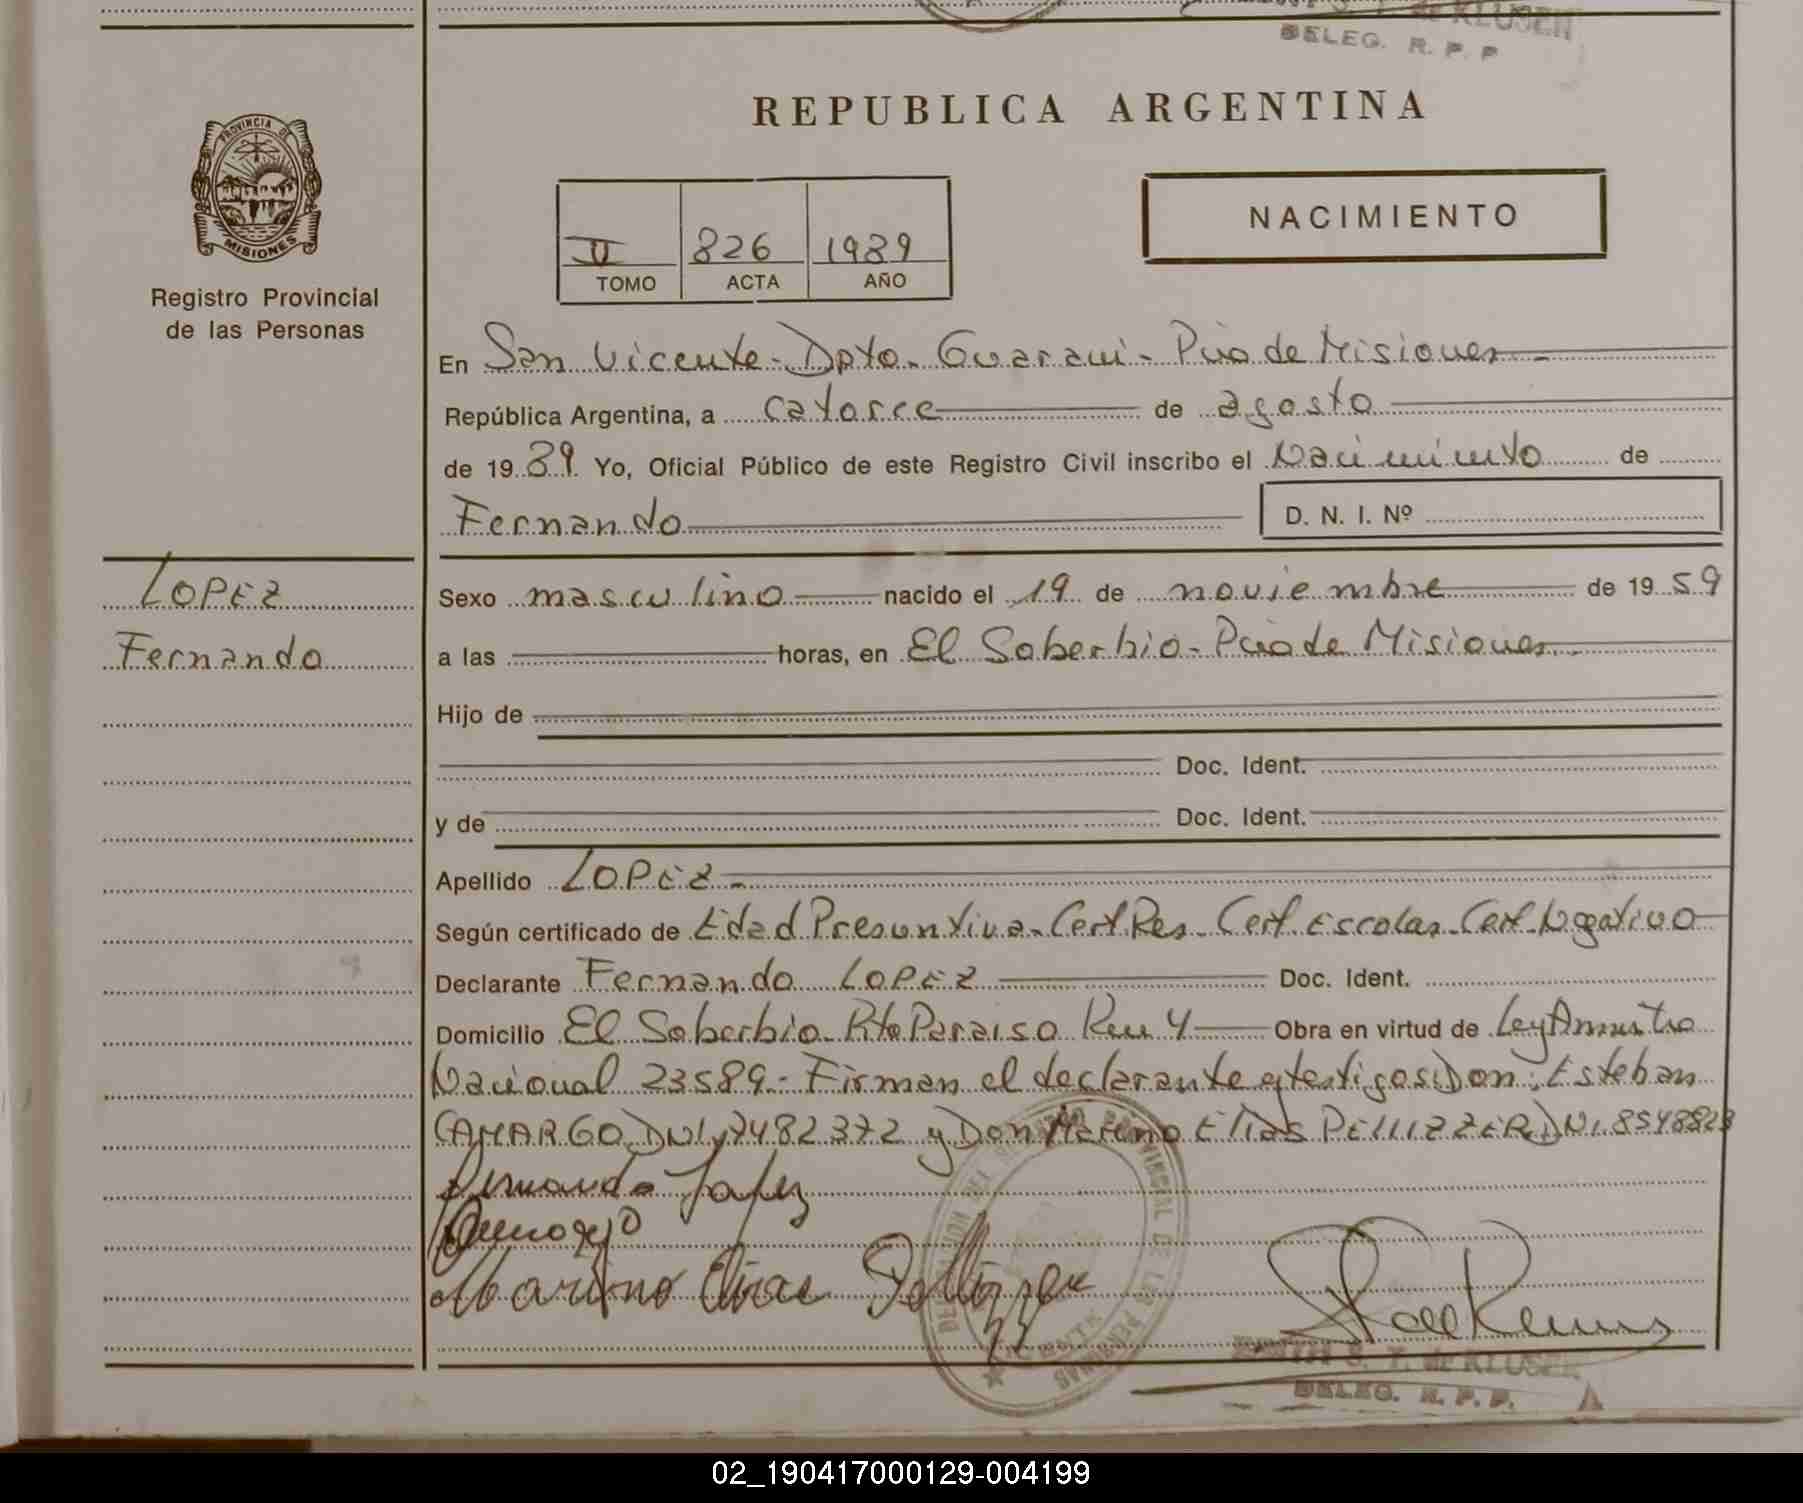 de KLUSEN
DELEG. R. P. P
REPUBLICA ARGENTINA
PROVINCIA DE
MISIONES
Registro Provincial
de las Personas
NACIMIENTO
II 826 1989
TOMO ACTA AÑO
En San Vicente - Dpto. Guarani - Pcia de Misiones -
República Argentina, a catorce de agosto
de 19 89 Yo, Oficial Público de este Registro Civil inscribo el Nacimiento de
Fernando D. N. I. Nº
LOPEZ
Fernando
Sexo masculino nacido el 19 de noviembre de 19 59
a las horas, en El Soberbio - Pcia de Misiones
Hijo de
Doc. Ident.
y de Doc. Ident.
Apellido LOPEZ -
Según certificado de Edad Presuntiva - Cert. Res. Cert. Escolar - Cert. Negativo
Declarante Fernando LOPEZ Doc. Ident.
Domicilio El Soberbio - Pto Paraiso Km 4 Obra en virtud de Ley Amnistia
Nacional 23589 - Firman el declarante y testigos: Don: Esteban
CAMARGO DNI 7482372 y Don Marino Elias PELLIZZER DNI. 8548823
Fernando Lopez
Marino Elias Pellizzer
S. T. de KLUSEN
DELEG. R. P. P.
02_190417000129-004199